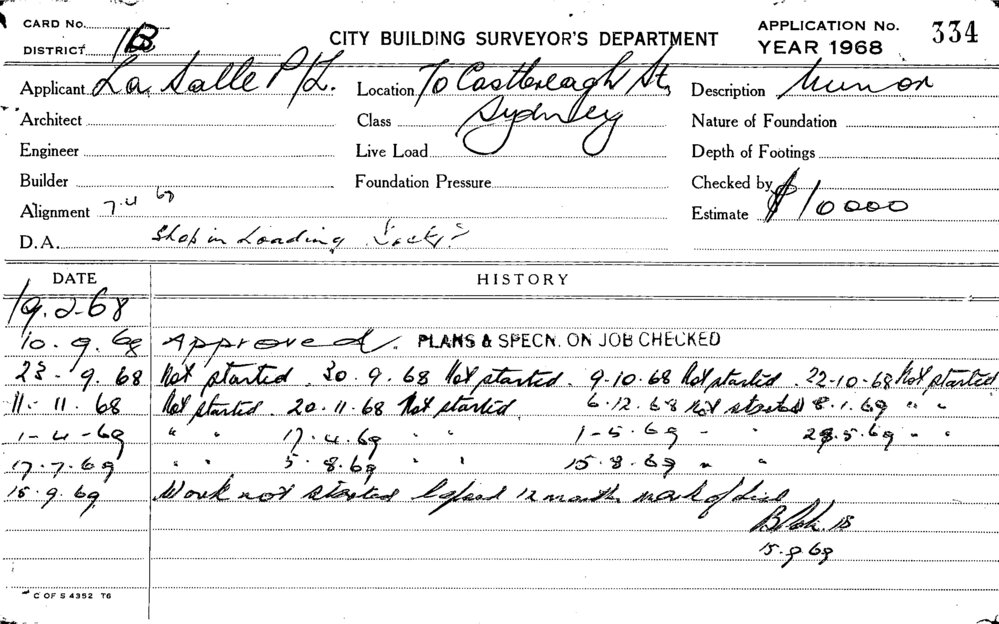 CARD No.
DISTRICT 1B
CITY BUILDING SURVEYOR'S DEPARTMENT
APPLICATION No. 334
YEAR 1968
Applicant La Salle P/L. Location 70 Castlereagh St, Description Minor
Architect Class Sydney Nature of Foundation
Engineer Live Load Depth of Footings
Builder Foundation Pressure Checked by
Alignment 7.4 69 Estimate $10000
D.A. Shop in Loading
DATE HISTORY
19.2.68
10.9.68 Approved. PLANS & SPECN. ON JOB CHECKED
23.9.68 Not started. 30.9.68 Not started. 9-10.68 Not started. 22-10-68 Not started
11-11.68 Not started. 20.11.68 Not started. 6.12.68 Not started 8.1.69 " "
1-4-69 " " 17.4.69 " " 1-5.69 " " 28.5.69 " "
17.7.69 " " 5.8.69 " " 15.8.69 " "
15.9.69 Work not started 12 months
15.9.69
C OF S 4352 T6